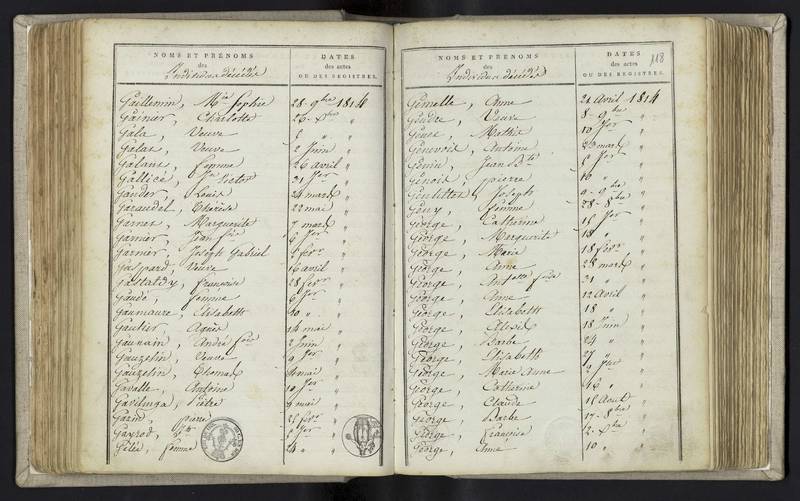 NOMS ET PRÉNOMS
des
Individus décédés
DATES
des actes
OU DES REGISTRES.
Guillemin, Mie Sophie 28 9bre 1814
Garnier, Charlotte 26 "
Gala, Veuve 8 " "
Galat, Veuve 2 Juin "
Galant, femme 26 avril "
Gallice, 21 Jer "
Gander, Louis 24 mars "
Garaudel, Thérèse 22 mai "
Garnier, Marguerite 7 mars "
Garnier, Jean fcis Jer "
Garnier, Joseph Gabriel fevr "
Gaspard, Veuve 16 avril "
Gastaldy, françoise 28 fevr "
Gaudé, femme 6 Jer "
Gaumaure, Elisabeth 10 " "
Gautier, Agnès 14 mai "
Gauvain, André fcois 2 Juin "
Gauzelin, Veuve 9 Jer "
Gauzelin, Thomas mai "
Gavalle, Antoine 10 Jer "
Gavilinga, Piétre mai "
Garn, pierre 25 fevr "
Gaxrod, Jer "
Gélée, femme 24 " "
NOMS ET PRÉNOMS
des
Individus décédés
DATES
des actes
OU DES REGISTRES.
118
Gemelle, Anne 21 Avril 1814
Gendre, Veuve 8 9bre "
Genee, Mathie 10 Jer "
Genevois, Antoine 26 mars "
Genin, Jean Bte Jer "
Genois, pierre 16 " "
Gentillet, Joseph 9 9bre "
Geny, femme 28 8bre "
George, Catherine 15 Jer "
George, Marguerite 18 " "
George, Marie 18 fevr "
George, Anne 28 mars "
George, Antoine fcois 31 " "
George, Anne 12 Avril "
George, Elisabeth 18 " "
George, 18 Juin "
George, Barbe 24 " "
George, Elisabeth 27 " "
George, Marie Anne "
George, Catherine 16 " "
George, Claude 15 Aout "
George, Barbe 17 8bre "
George, françoise 12 "
George, Anne 10 " "